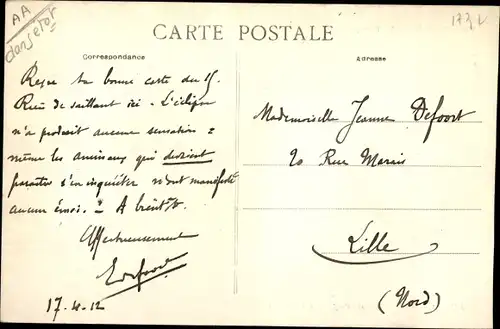 AA
CARTE POSTALE
Correspondance
Adresse
Reçu ta bonne carte du 15.
Rien de saillant ici. L'éclipse
n'a produit aucune sensation :
même les animaux qui devaient
paraître s'en inquiéter n'ont manifesté
aucun émoi. - A bientôt.
Affectueusement
EDefoort
17-4-12
Mademoiselle Jeanne Defoort
20 Rue Marais
Lille
(Nord)